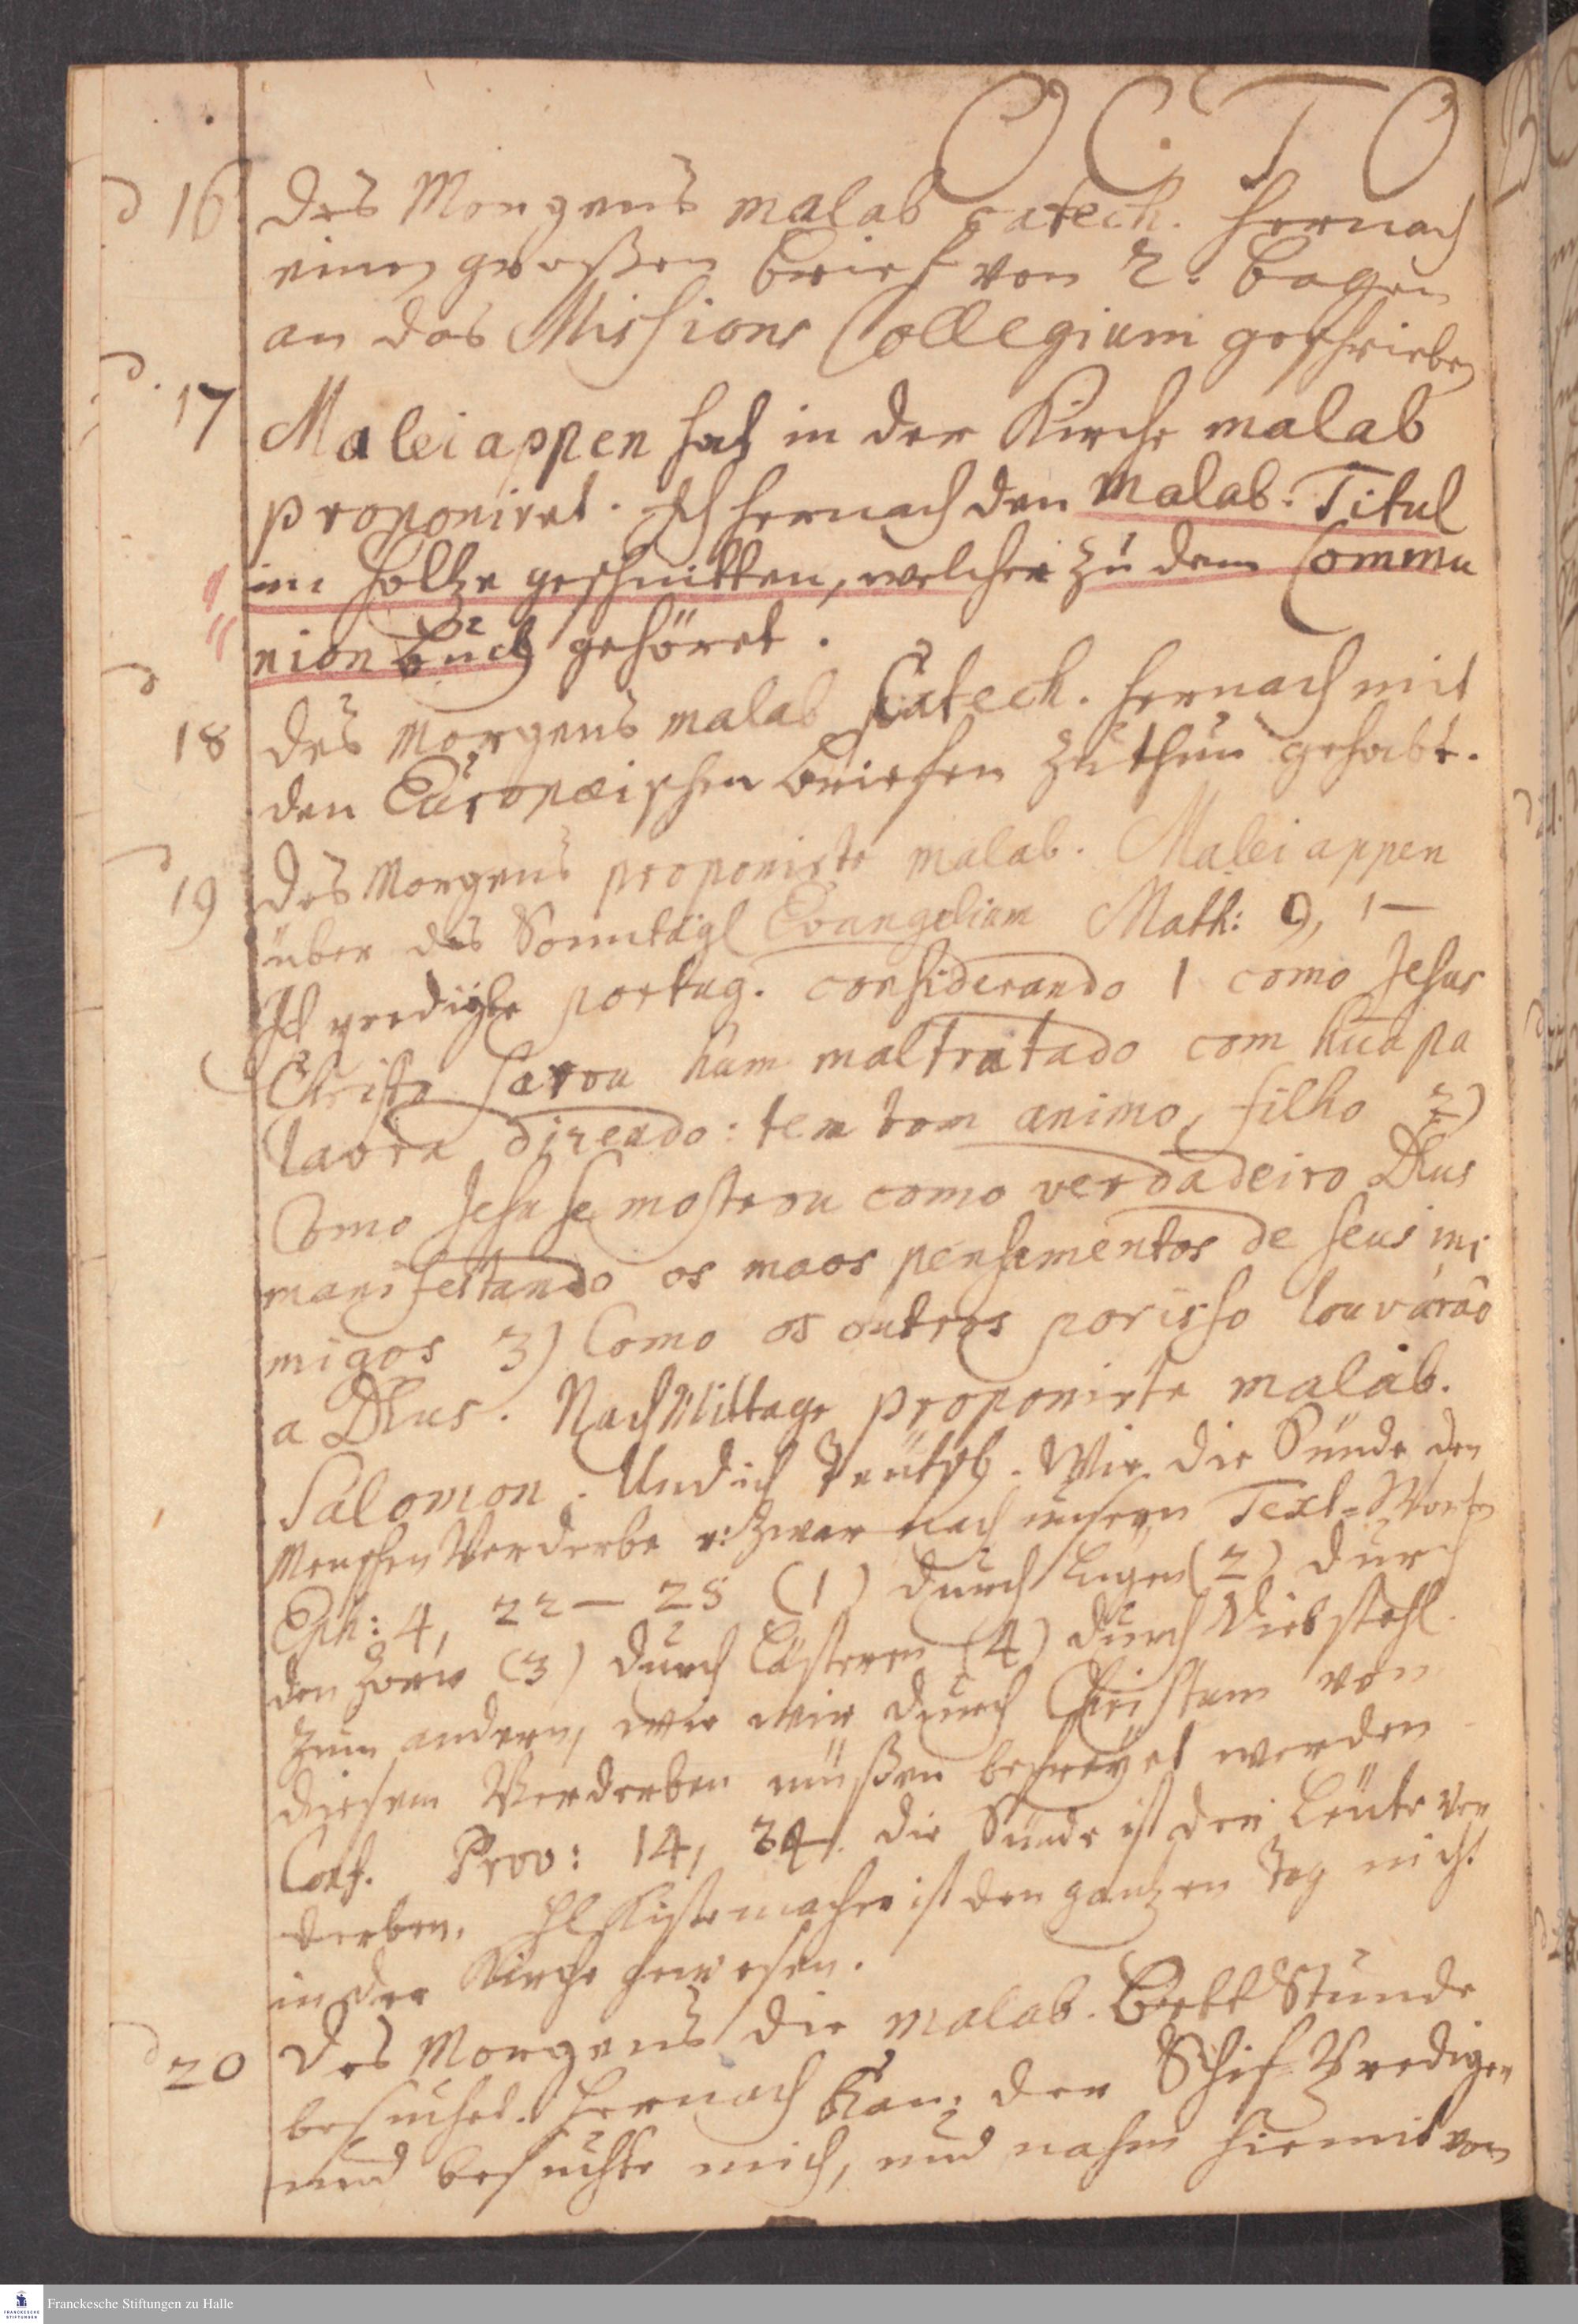 OCTO
d 16 des Morgens malab catech. hernach
einen großen brief von 2. bogen
an das Missions Collegium geschrieben
d. 17 Maleiappen hat in der Kirche malab
proponiret. Ich hernach den malab. Titul
im Holtze geschnitten, welcher zu dem Commu
nion buch gehöret.
d 18 des Morgens malab Catech. hernach mit
den Europæischen briefen zuthun gehabt.
d 19 des Morgens proponirte malab. Maleiappen
über das Sonntägl Evangelium Math: 9, 1—
Ich predigte portug. considerando 1 como Jesus
Christo sarou hum maltratado com hũa pa
lavra dizendo: tem bom animo, filho 2)
Como Jesu se mostrou como verdadeiro Dhus
manifestando os maos pensamentos de seus ini
migos 3) Como os outros porisso louvárão
a Dhus. NachMittage proponirte malab.
Salomon. Und ich Teütsch. Wie die Sünde den
Menschen Verderbe u: zwar nach unsern Text-Worten
Eph: 4, 22—28 (1) durch Lügen (2) durch
den Zorn (3) durch Lästeren (4) durch Diebstahl.
Zum andern, wie wir durch Christum von
diesem Verderben müßen befreyet werden
Conf. Prov: 14, 34. die Sünde ist der Leute ver
derben. H Kistemacher ist den gantzen Tag nicht
in der Kirche gewesen.
d 20 Des Morgens die malab. Bett Stunde
besuchet. Hernach kam der Schif-Prediger
und besuchte mich, und nahm hiemit von